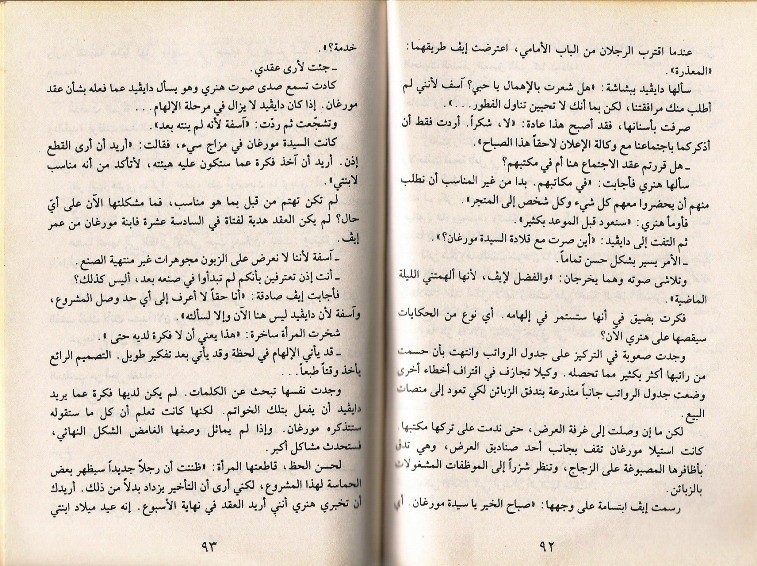 عندما اقترب الرجلان من الباب الأمامي، اعترضت إيڤ طريقهما:
«المعذرة».
سألها دايڤيد ببشاشة: «هل شعرت بالإهمال يا حبي؟ آسف لأنني لم
أطلب منك مرافقتنا، لكن بما أنك لا تحبين تناول الفطور...».
صرفت بأسنانها، فقد أصبح هذا عادة: «لا، شكراً. أردت فقط أن
أذكركما باجتماعنا مع وكالة الإعلان لاحقاً هذا الصباح».
ـ هل قررتم عقد الاجتماع هنا أم في مكتبهم؟
سألها هنري فأجابت: «في مكاتبهم. بدا من غير المناسب أن نطلب
منهم أن يحضروا معهم كل شيء وكل شخص إلى المتجر».
فأومأ هنري: «سنعود قبل الموعد بكثير».
ثم التفت إلى دايڤيد: «أين صرت مع قلادة السيدة مورغان؟».
ـ الأمر يسير بشكل حسن تماماً.
وتلاشى صوته وهما يخرجان: «والفضل لإيڤ، لأنها ألهمتني الليلة
الماضية».
فكرت بضيق في أنها ستستمر في إلهامه. أي نوع من الحكايات
سيقصها على هنري الآن؟
وجدت صعوبة في التركيز على جدول الرواتب وانتهت بأن حسمت
من راتبها أكثر بكثير مما تحصله. وكيلا تجازف في اقتراف أخطاء أخرى
وضعت جدول الرواتب جانباً متذرعة بتدفق الزبائن لكي تعود إلى منصات
البيع.
لكن ما إن وصلت إلى غرفة العرض، حتى ندمت على تركها مكتبها.
كانت استيلا مورغان تقف بجانب أحد صناديق العرض، وهي تدق
بأظافرها المصبوغة على الزجاج، وتنظر شزراً إلى الموظفات المشغولات
بالزبائن.
رسمت إيڤ ابتسامة على وجهها: «صباح الخير يا سيدة مورغان. أي
٩٢
خدمة؟».
ـ جئت لأرى عقدي.
كادت تسمع صدى صوت هنري وهو يسأل دايڤيد عما فعله بشأن عقد
مورغان. إذا كان دايڤيد لا يزال في مرحلة الإلهام...
وتشجّعت ثم ردّت: «آسفة لأنه لم ينته بعد».
كانت السيدة مورغان في مزاج سيء، فقالت: «أريد أن أرى القطع
إذن. أريد أن آخذ فكرة عما ستكون عليه هيئته، لأتأكد من أنه مناسب
لابنتي».
لم تكن تهتم من قبل بما هو مناسب، فما مشكلتها الآن على أيّ
حال؟ لم يكن العقد هدية لفتاة في السادسة عشرة فابنة مورغان من عمر
إيڤ.
ـ آسفة لأننا لا نعرض على الزبون مجوهرات غير منتهية الصنع.
ـ أنت إذن تعترفين بأنكم لم تبدأوا في صنعه بعد، أليس كذلك؟
فأجابت إيڤ صادقة: «أنا حقاً لا أعرف إلى أي حد وصل المشروع،
وآسفة لأن دايڤيد ليس هنا الآن وإلا لسألته».
شخرت المرأة ساخرة: «هذا يعني أن لا فكرة لديه حتى».
ـ قد يأتي الإلهام في لحظة وقد يأتي بعد تفكير طويل. التصميم الرائع
يأخذ وقتاً طبعاً...
وجدت نفسها تبحث عن الكلمات. لم يكن لديها فكرة عما يريد
دايڤيد أن يفعل بتلك الخواتم. لكنها كانت تعلم أن كل ما ستقوله
ستتذكره مورغان. وإذا لم يماثل وصفها الغامض الشكل النهائي،
فستحدث مشاكل أكبر.
لحسن الحظ، قاطعتها المرأة: «ظننت أن رجلاً جديداً سيظهر بعض
الحماسة لهذا المشروع، لكني أرى أن التأخير يزداد بدلاً من ذلك. أريدك
أن تخبري هنري أنني أريد العقد في نهاية الأسبوع. إنه عيد ميلاد ابنتي
٩٣